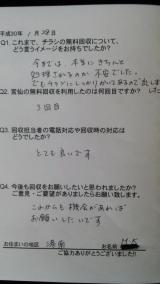 平成30年 1月28日
Q1.これまで、チラシの無料回収について、
どう言うイメージをお持ちでしたか?
今までは、本当にきちんと
処理されるのか不安でした。
Q2.宮仙の無料回収を利用したのは何回目ですか?
3回目
Q3.回収担当者の電話対応や回収時の対応は
どうでしたか?
とても良いです
Q4.今後も回収をお願いしたいと思われましたか?
ご意見・ご要望がありましたらお願い致します。
これからも機会があれば
お願いしたいです
お住まいの地区 港南 お名前 M.K
ご協力ありがとうございました!!